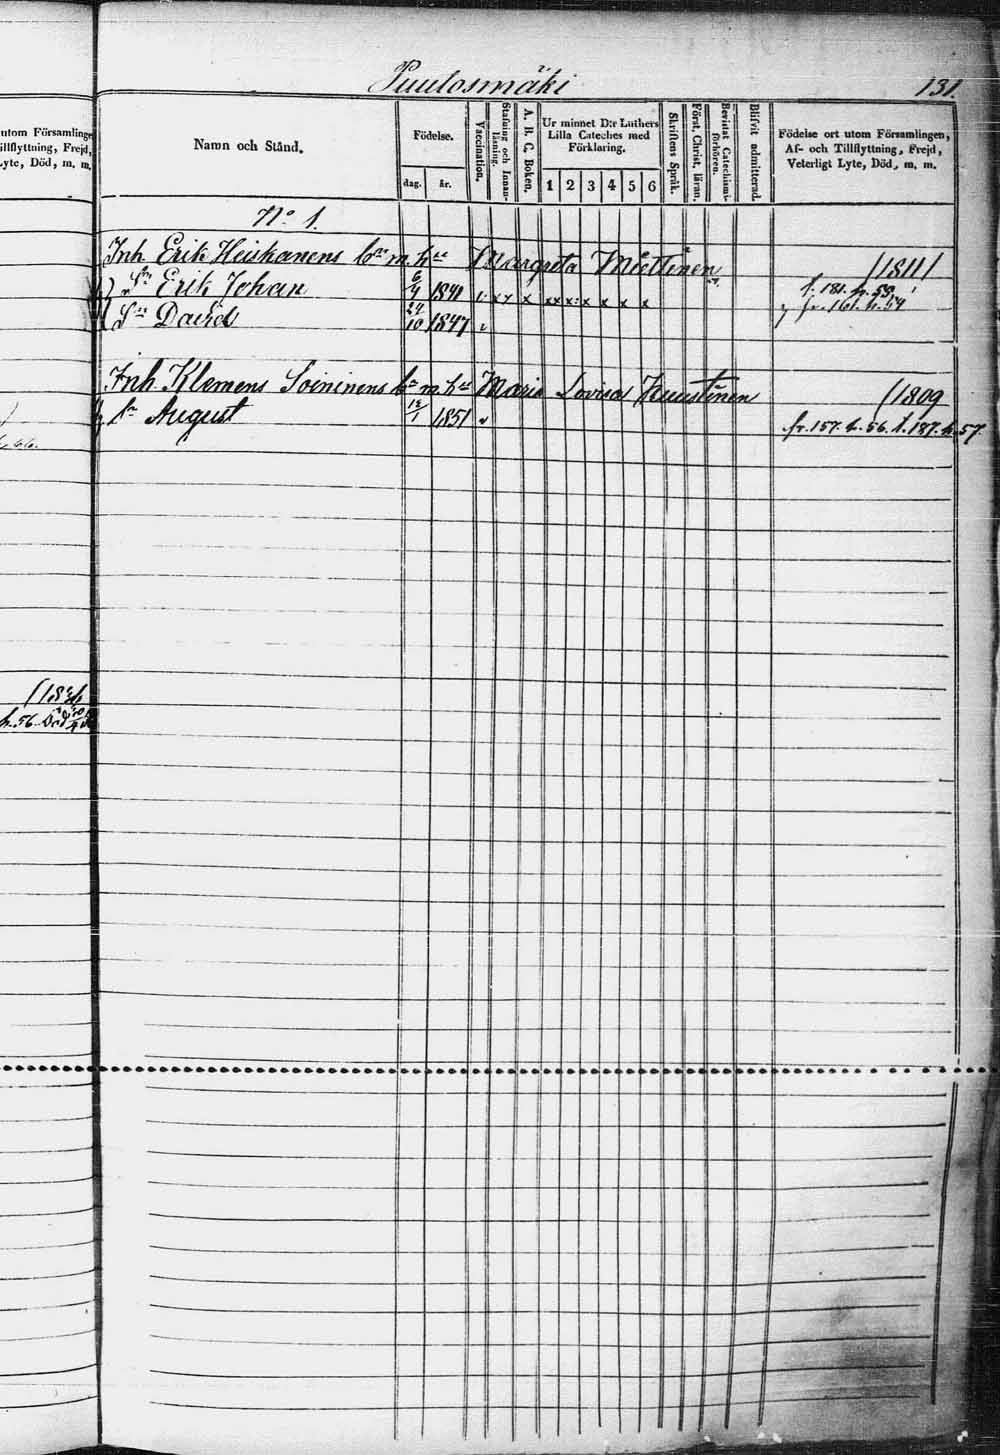 Puulosmäki 131.
utom Församlinge
illflyttning, Frejd,
Lyte, Död, m. m.
Namn och Stånd.
Födelse.
dag. år.
Vaccination.
Stafning och Innanläsning.
A. B. C. Boken.
Ur minnet D:r Luthers Lilla Cateches med Förklaring.
1 2 3 4 5 6
Skriftens Språk.
Först. Christ. läran.
Bevistat Catechismiförhören.
Blifvit admitterad.
Födelse ort utom Församlingen,
Af- och Tillflyttning, Frejd,
Veterligt Lyte, Död, m. m.
No 1.
Inh. Erik Heiskanens bn m. h. Margreta Möttinen /1811/
Sn Erik Johan 6/4 1841 x x x x x x x x x f. 181. h. 59.
fr. 161. h. 54
Sn David 24/10 1847
Inh. Klemens Soininens bn m. h. Maria Lovisa Kuustinen /1809
Sn August 12/1 1851 fr. 157. h. 56. f. 187. h. 57.
h. 56. Död